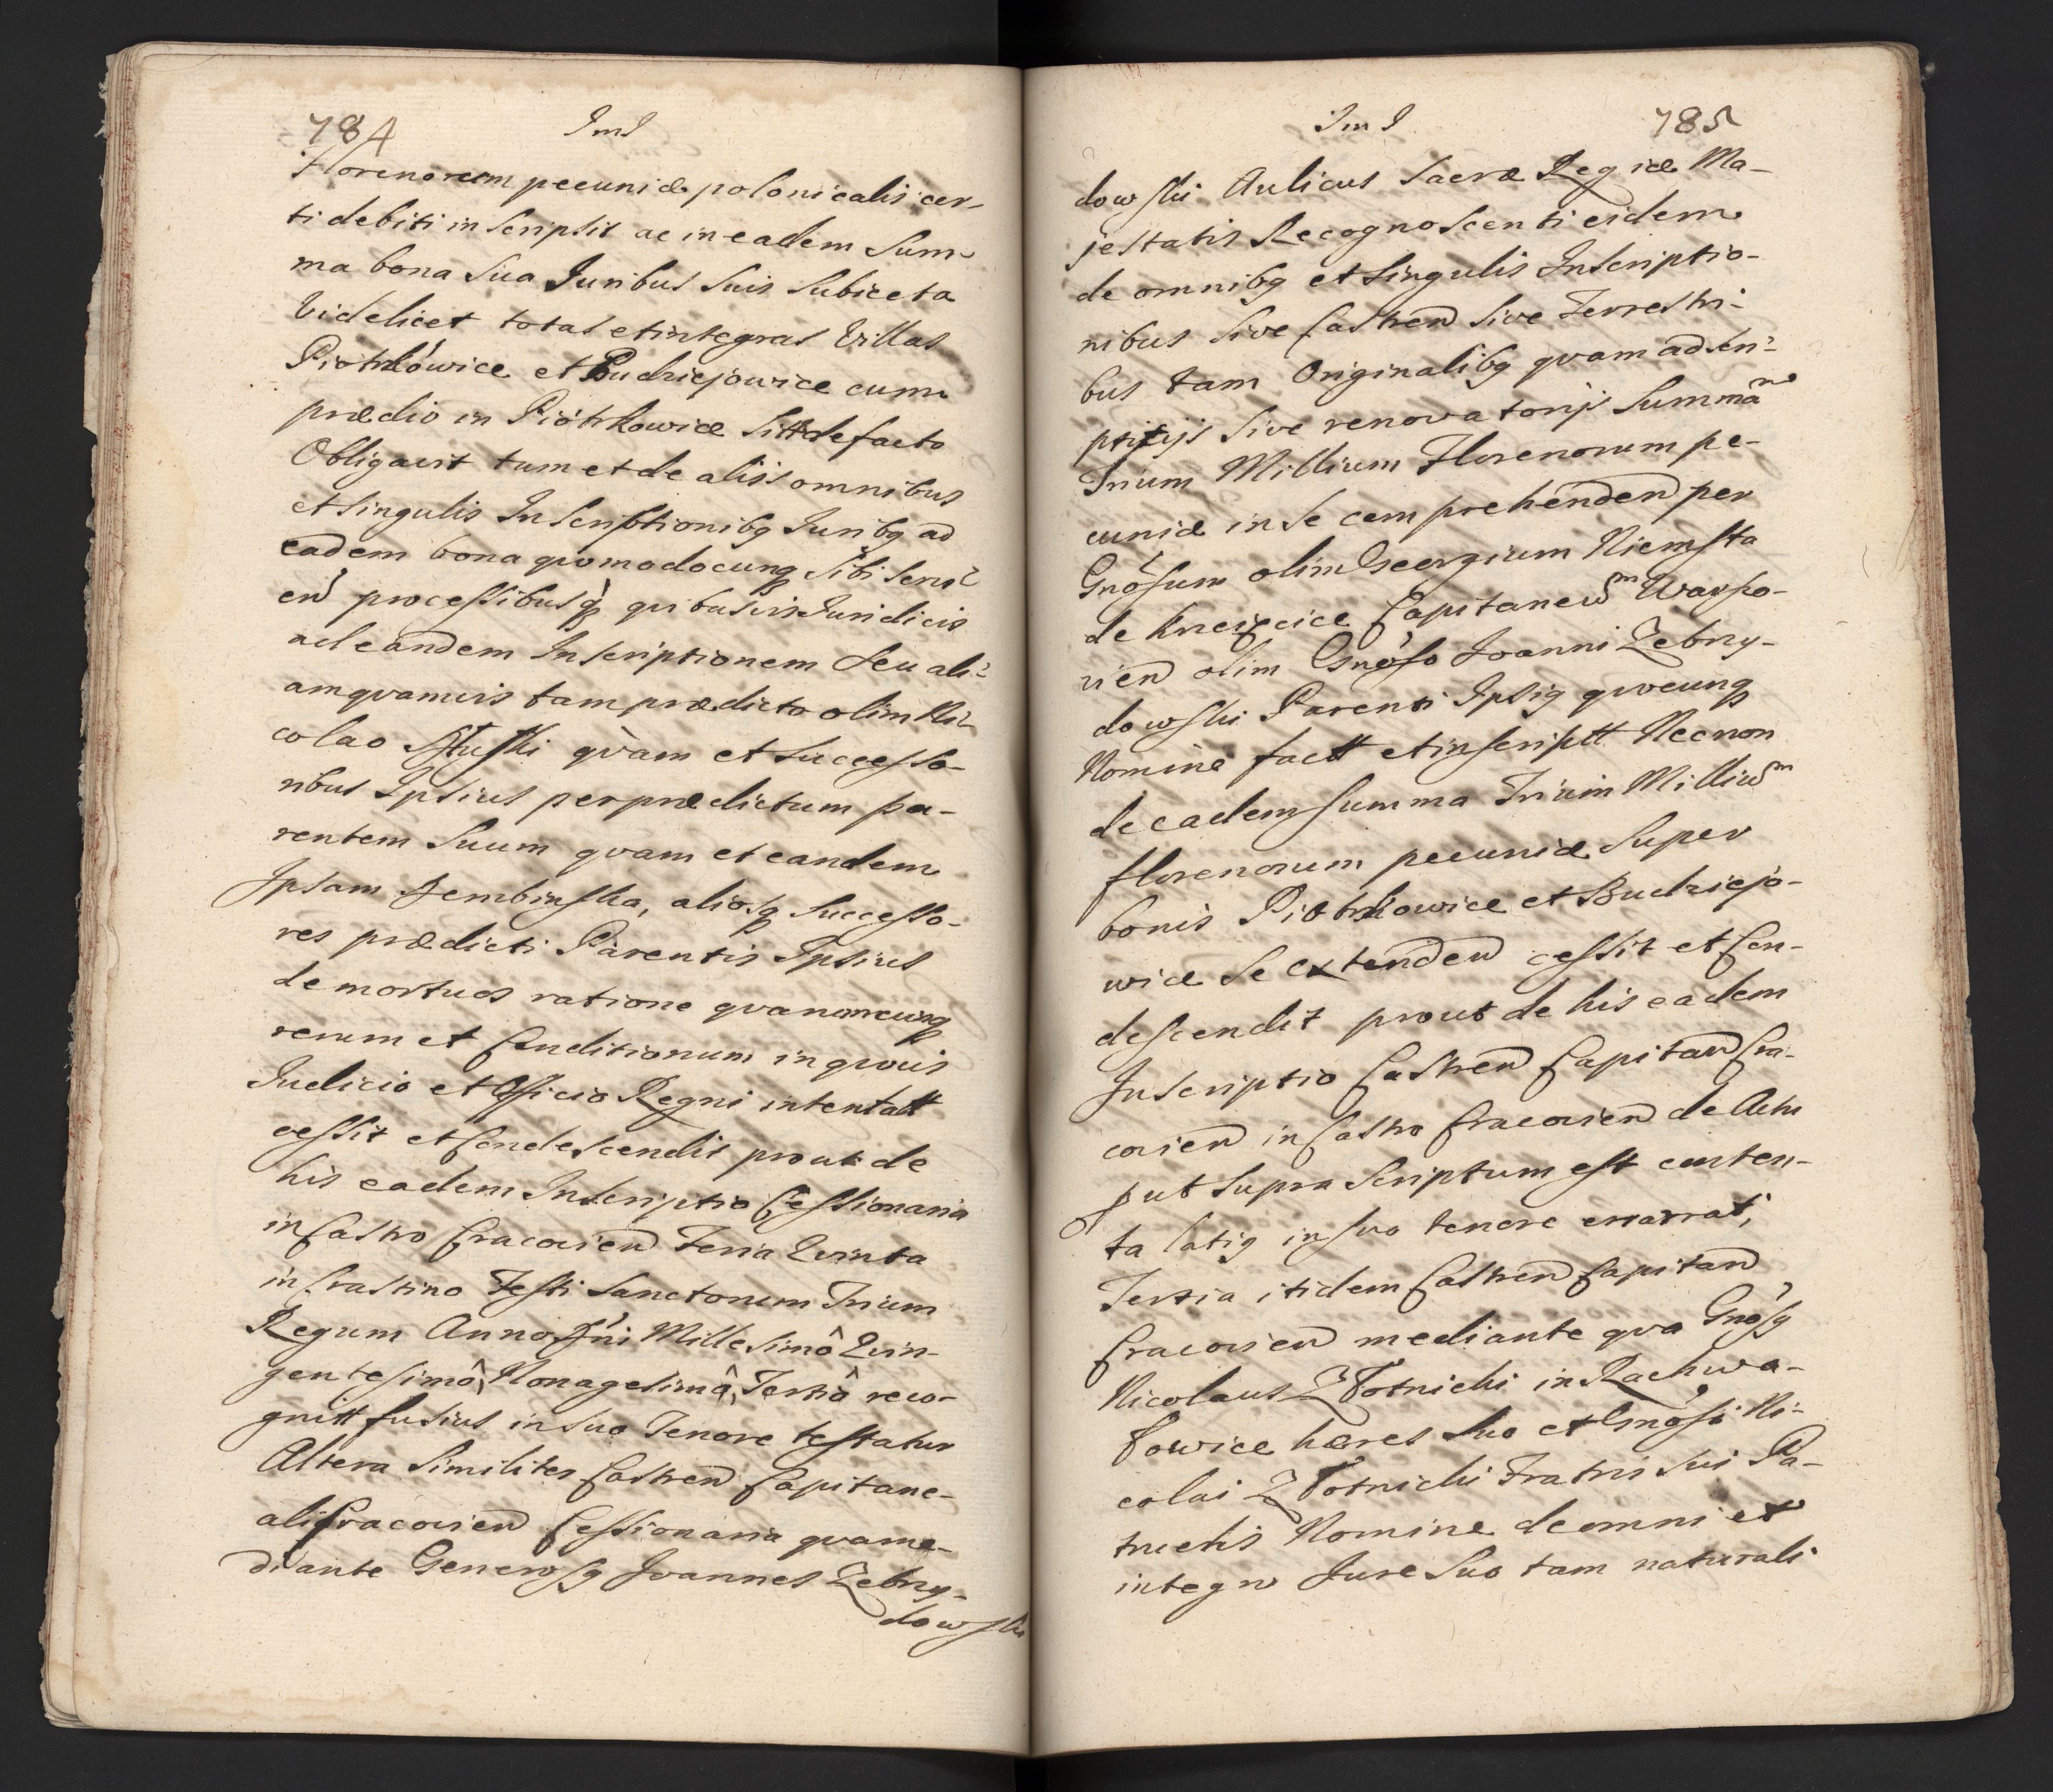 784
JmJ
Florenorum pecuniæ polonicalis cer-
ti debiti inscripsit ac in eadem Sum-
ma bona Sua Juribus Suis Subiecta
Videlicet totas et integras Villas
Piotrkówice et Budziejowice cum
prædio in Piótrkowice Sitt de facto
Obligavit tum et de aliis omnibus
et Singulis Inscriptionibq Juribq ad
eadem bona quomodocunq Sibi Servi-
en processibusq quibusvis Juridicis
ad eandem Inscriptionem Seu ali-
am quamvis tam prædicto olim Ni-
colao quam et Successo-
ribus Ipsius per prædictum pa-
rentem Suum quam et eandem
Ipsam Dembinska, aliosq Successo-
res prædicti Parentis Ipsius
demortuos ratione quarumcunq
rerum et Conditionum in quovis
Judicio et Officio Regni intentatt
cessit et Condescendit prout de
his eadem Inscriptio Cessionaria
in Castro Cracovien Feria Quinta
in Crastino Festi Sanctorum Trium
Regum Anno Dni Millesimô Quin-
gentesimô, Nonagesimô, Tertiô reco-
gnitt fusius in Suo Tenore testatur
Altera Similiter Castren Capitane-
alis Cracovien Cessionaria qua me-
diante Generosq Joannes Zebrzy-
dowski
JmJ
785
dowski Aulicus Sacræ Regiæ Ma-
jestatis Recognoscenti eidem
de omnibq et Singulis Inscriptio-
nibus Sive Castren Sive Terrestri-
bus tam Originalibq quam adscri-
ptitijs Sive renovatorijs Summam
Trium Millium Florenorum pe-
cuniæ in Se comprehenden per
Gnosum olim Georgium Niemsta
de Krcięcice Capitaneum Warso-
vien olim Gnoso Joanni Zebrzy-
dowski Parenti Ipsiq quocunq
Nomine factt et inscriptt Necnon
de eadem Summa Trium Millium
florenorum pecuniæ Super
bonis Piotrkowice et Budziejo-
wice Se extenden cessit et Con-
descendit prout de his eadem
Inscriptio Castren Capitan Cra-
covien in Castro Cracovien de Actu
put Supra Scriptum est conten-
ta latiq in Suo tenore enarrat,
Tertia itidem Castren Capitan
Cracovien mediante qua Gnosq
Nicolaus Złotnicki in Rachwa-
łowice hæres Suo et Gnosi Ni-
colai Złotnicki Fratris Sui Pa-
truelis Nomine de omni et
integro Jure Suo tam naturali